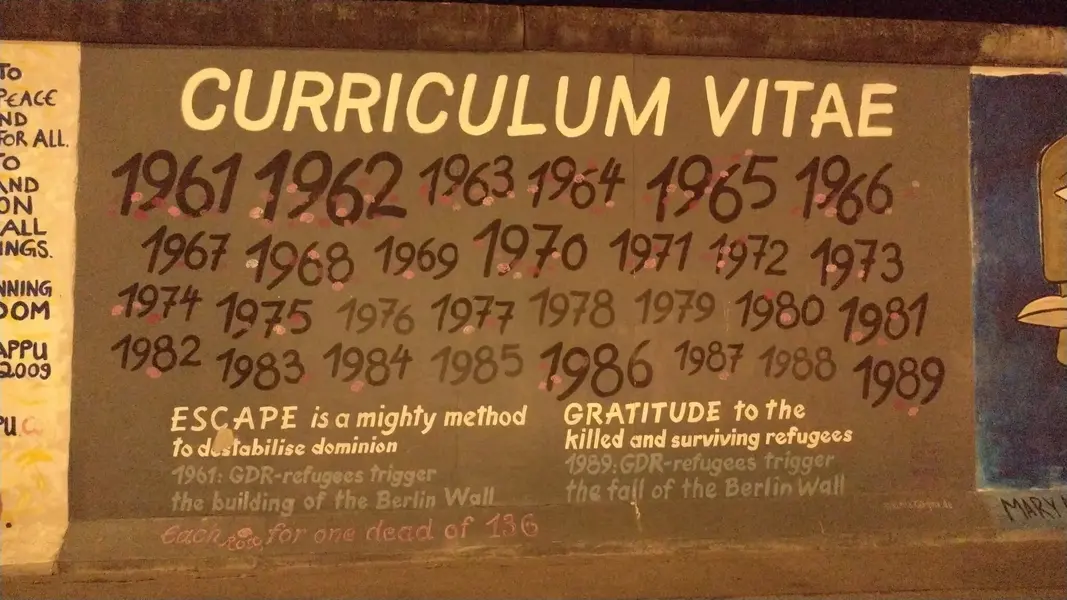 TO
PEACE
ND
FOR ALL.
TO
AND
ON
ALL
INGS.
NNING
DOM
APPU
2009
PU
CURRICULUM VITAE
1961 1962 1963 1964 1965 1966
1967 1968 1969 1970 1971 1972 1973
1974 1975 1976 1977 1978 1979 1980 1981
1982 1983 1984 1985 1986 1987 1988 1989
ESCAPE is a mighty method
to destabilise dominion
1961: GDR-refugees trigger
the building of the Berlin Wall
Each rose for one dead of 136
GRATITUDE to the
killed and surviving refugees
1989: GDR-refugees trigger
the fall of the Berlin Wall
MARY